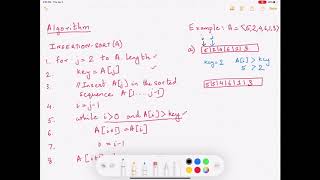 Algorithm
INSERTION-SORT(A)
1. for j = 2 to A.length
2. key = A[j]
3. // Insert A[j] in the sorted
sequence A[1 ... j-1]
4. i = j-1
5. while i>0 and A[i] > key
6. A[i+1] = A[i]
7. i = i-1
8.
Example: A = {5,2,4,6,1,3}
a) 5 2 4 6 1 3
key=2 A[i] > key
5 > 2
5 2 4 6 1 3